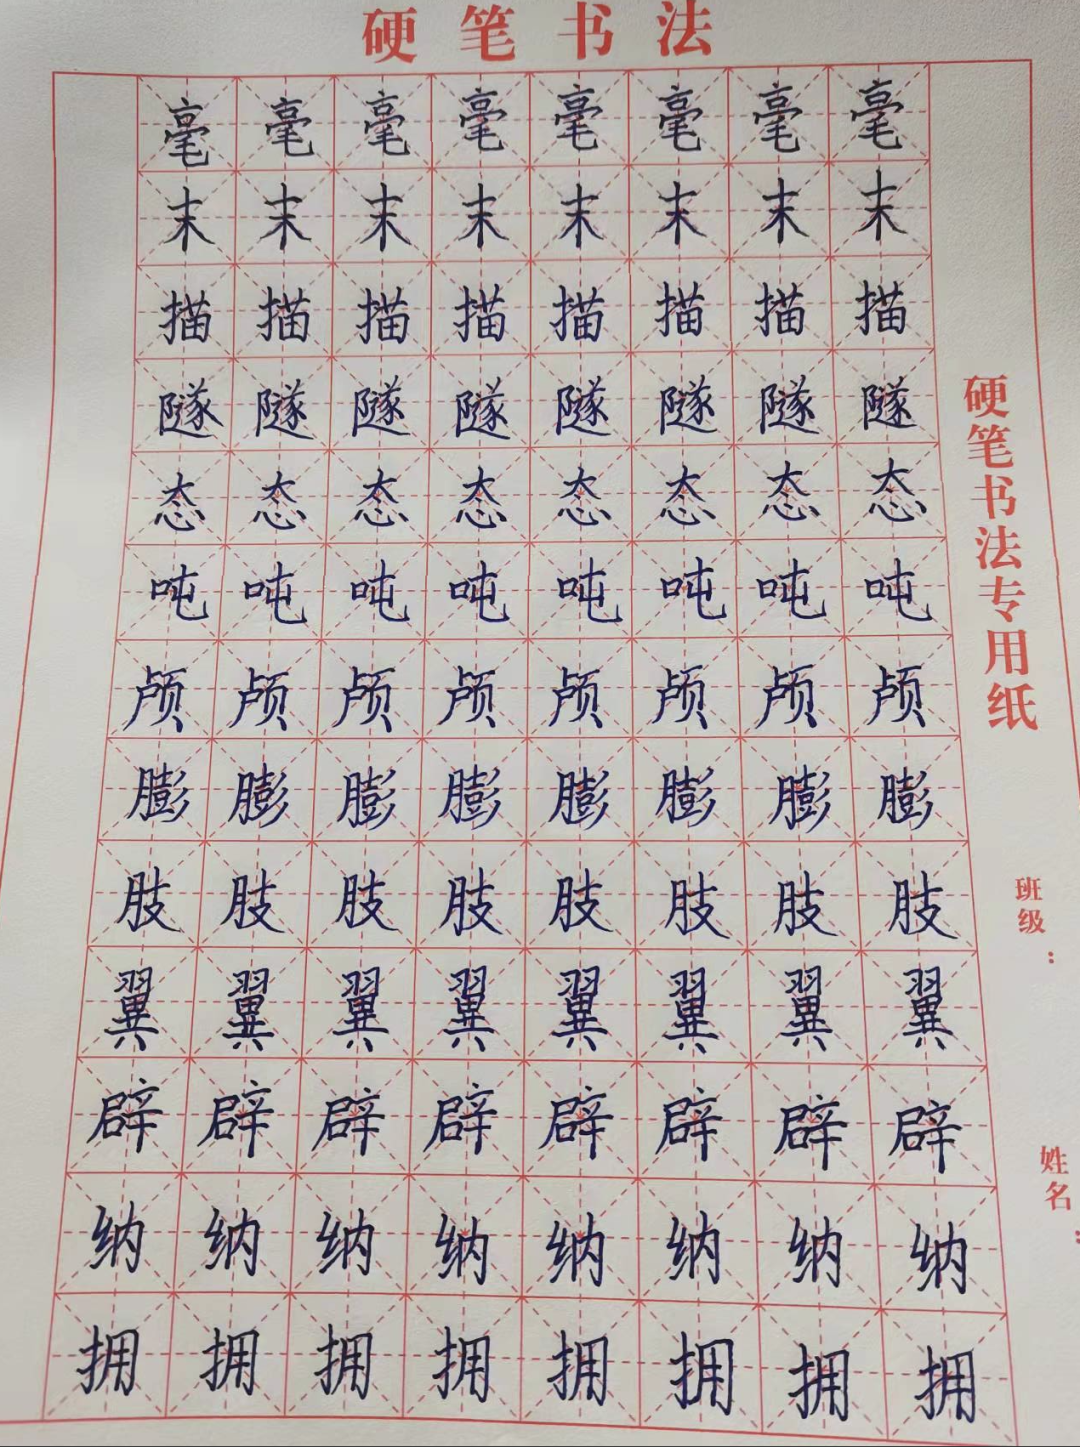 硬笔书法
毫毫毫毫毫毫毫毫
末末末末末末末末
描描描描描描描描
隧隧隧隧隧隧隧隧
态态态态态态态态
吨吨吨吨吨吨吨吨
颅颅颅颅颅颅颅颅
膨膨膨膨膨膨膨膨
肢肢肢肢肢肢肢肢
翼翼翼翼翼翼翼翼
辟辟辟辟辟辟辟辟
纳纳纳纳纳纳纳纳
拥拥拥拥拥拥拥拥
硬笔书法专用纸
班级：
姓名：